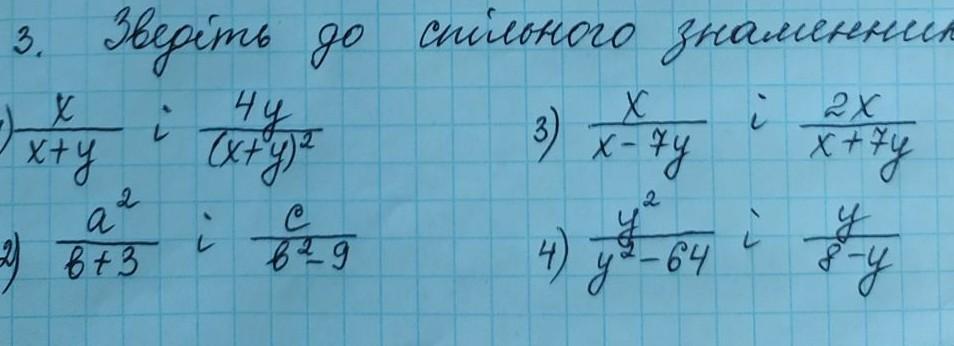 3. Зведіть до спільного знаменник
1) x/(x+y) і 4y/(x+y)² 3) x/(x-7y) і 2x/(x+7y)
2) a²/(b+3) і c/(b²-9) 4) y²/(y²-64) і y/(8-y)